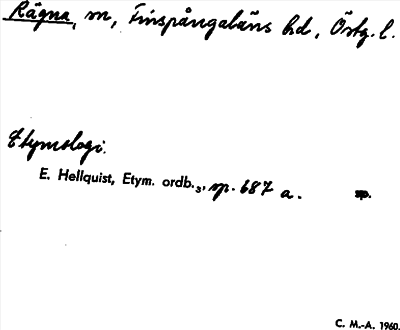 Rägna, m, Finspångaläns hd, Östg. l.
Etymologi.
E. Hellquist, Etym. ordb.₃, sp. 687 a.
C. M.-A. 1960.